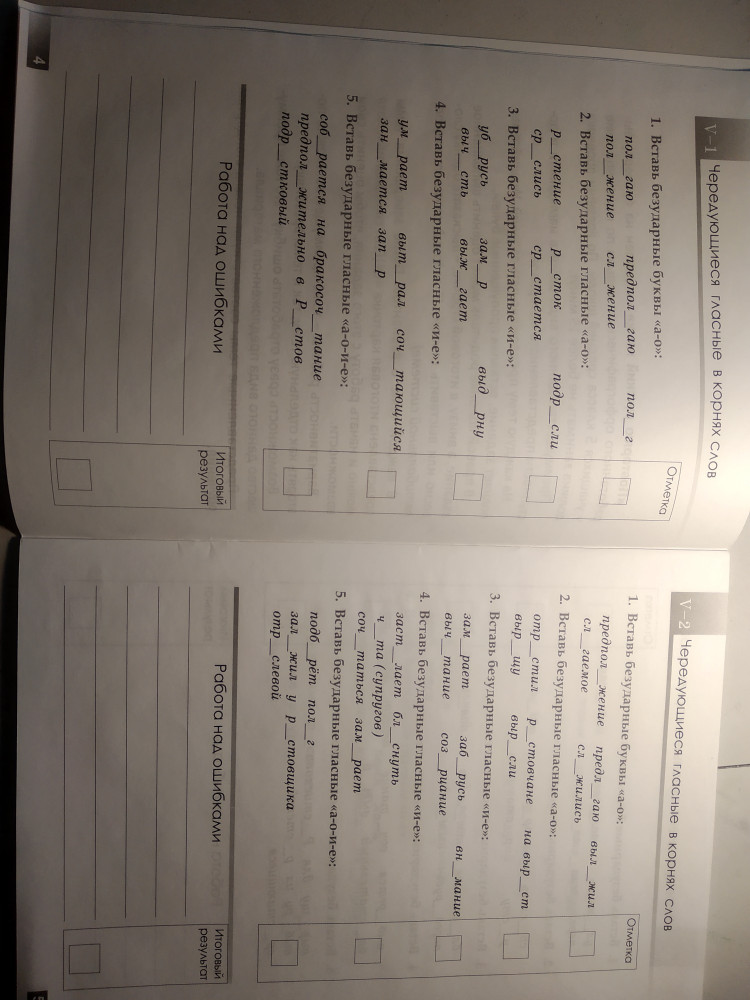 V–1 Чередующиеся гласные в корнях слов
Отметка
1. Вставь безударные буквы «а-о»:
пол__гаю предпол__гаю пол__г
пол__жение сл__жение
2. Вставь безударные гласные «а-о»:
р__стение р__сток подр__сли
ср__слись ср__стается
3. Вставь безударные гласные «и-е»:
уб__русь зам__р выд__рну
выч__сть выж__гает
4. Вставь безударные гласные «и-е»:
ум__рает выт__рал соч__тающийся
зан__мается зап__р
5. Вставь безударные гласные «а-о-и-е»:
соб__рается на бракосоч__тание
предпол__жительно в Р__стов
подр__стковый
Работа над ошибками
Итоговый
результат
4
V–2 Чередующиеся гласные в корнях слов
Отметка
1. Вставь безударные буквы «а-о»:
предпол__жение предл__гаю выл__жил
сл__гаемое сл__жились
2. Вставь безударные гласные «а-о»:
отр__стил р__стовчане на выр__ст
выр__щу выр__сли
3. Вставь безударные гласные «и-е»:
зам__рает заб__русь вн__мание
выч__тание соз__рцание
4. Вставь безударные гласные «и-е»:
заст__лает бл__снуть
ч__та (супругов)
соч__таться зам__рает
5. Вставь безударные гласные «а-о-и-е»:
подб__рёт пол__г
зал__жил у р__стовщика
отр__слевой
Работа над ошибками
Итоговый
результат
5